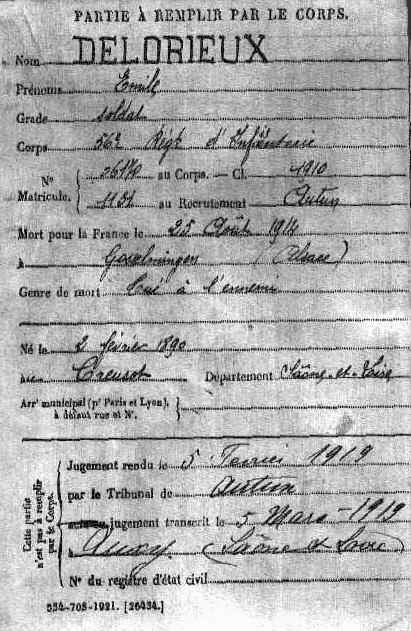 PARTIE À REMPLIR PAR LE CORPS.
Nom DELORIEUX
Prénoms Emile
Grade soldat
Corps 56e Régt d'Infanterie
N° Matricule. au Corps. — Cl. 1910
1131 au Recrutement Autun
Mort pour la France le 25 Août 1914
à (Alsace)
Genre de mort Tué à l'ennemi
Né le 2 février 1890
au Creusot Département Saône-et-Loire
Arrt municipal (pr Paris et Lyon), à défaut rue et N°.
Cette partie n'est pas à remplir par le Corps.
Jugement rendu le 5 Fevrier 1919
par le Tribunal de Autun
jugement transcrit le 5 Mars - 1919
à Auxy (Saône & Loire)
N° du registre d'état civil
534-708-1921. [26434.]